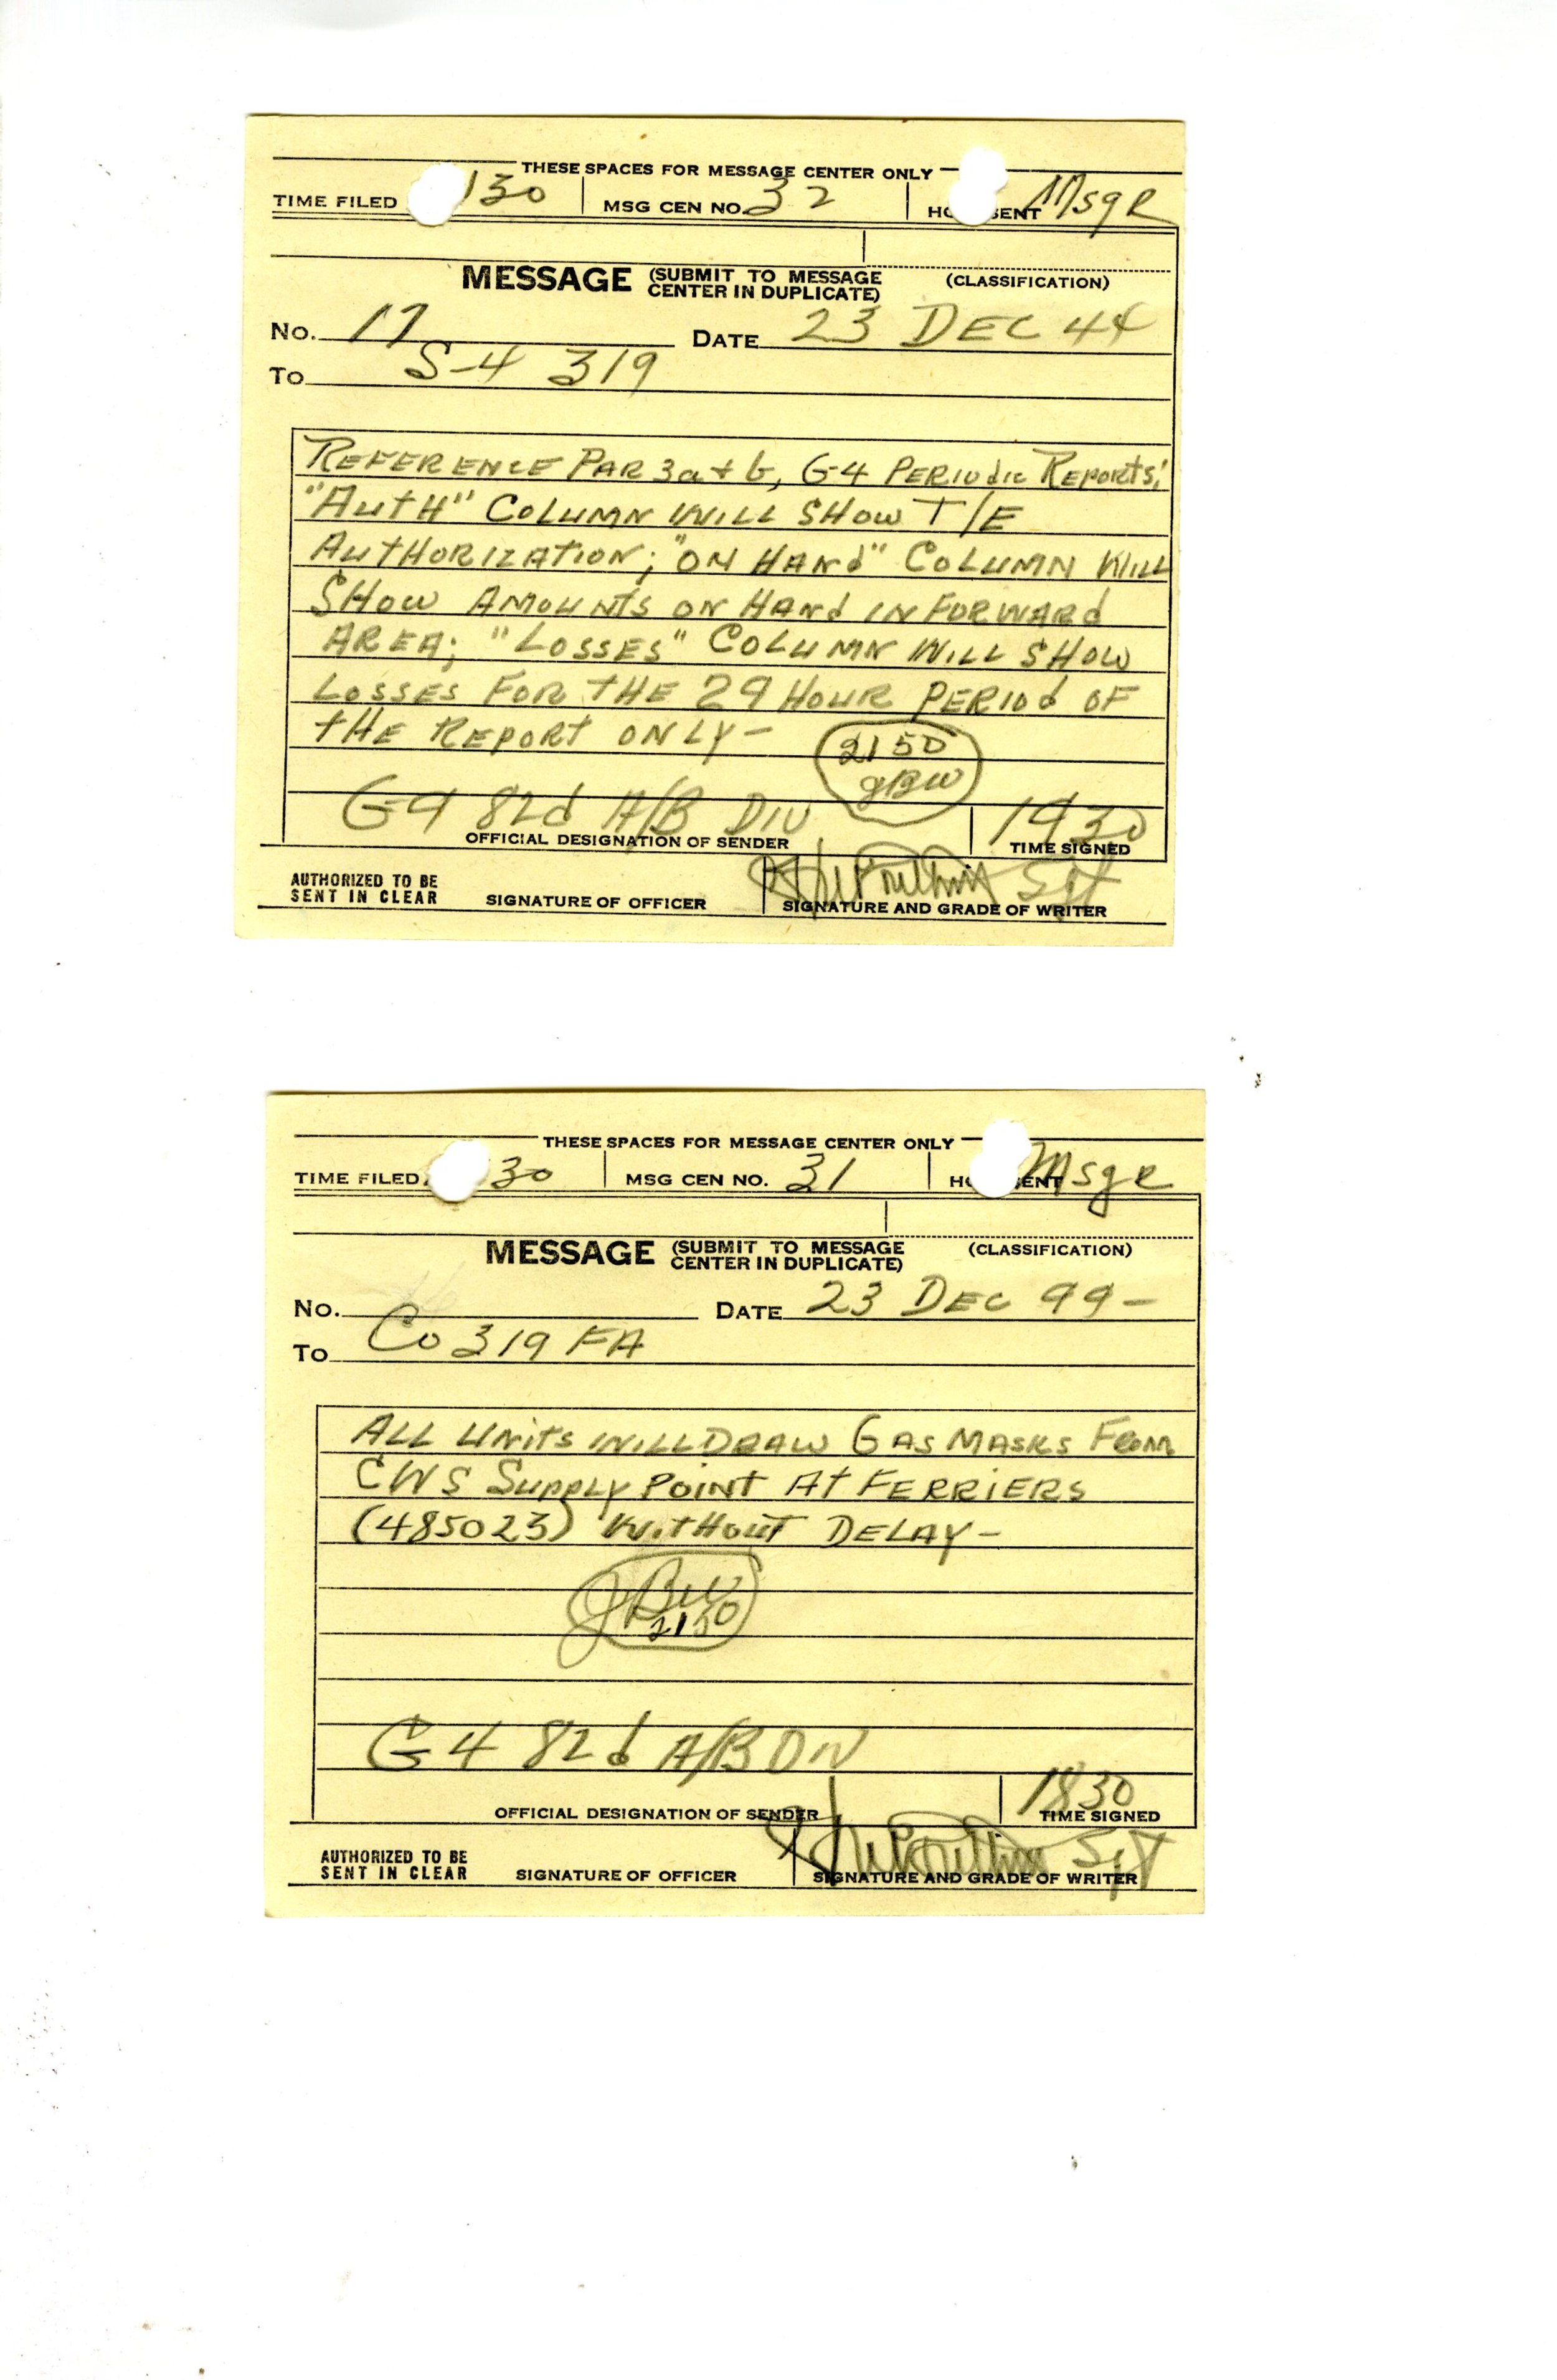 THESE SPACES FOR MESSAGE CENTER ONLY
TIME FILED 130 MSG CEN NO. 32 HO SENT Msgr
MESSAGE (SUBMIT TO MESSAGE CENTER IN DUPLICATE) (CLASSIFICATION)
No. 17 DATE 23 DEC 44
To S-4 319
REFERENCE PAR 3a + b, G-4 PERIODIC REPORTS:
"AUTH" COLUMN WILL SHOW T/E
AUTHORIZATION; "ON HANd" COLUMN WILL
SHOW AMOUNTS ON HANd IN FORWARd
AREA; "LOSSES" COLUMN WILL SHOW
LOSSES FOR THE 24 HOUR PERIOd OF
THE REPORT ONLY-
2150
JBW
G-4 82d A/B DIV 1930
OFFICIAL DESIGNATION OF SENDER TIME SIGNED
Sgt
AUTHORIZED TO BE SENT IN CLEAR SIGNATURE OF OFFICER SIGNATURE AND GRADE OF WRITER
THESE SPACES FOR MESSAGE CENTER ONLY
TIME FILED 30 MSG CEN NO. 31 HO ENT Msgr
MESSAGE (SUBMIT TO MESSAGE CENTER IN DUPLICATE) (CLASSIFICATION)
No. DATE 23 DEC 44-
To Co 319 FA
ALL UNITS WILL DRAW GAS MASKS FROM
CWS SUPPLY POINT AT FERRIERS
(485023) WITHOUT DELAY-
JBW
2150
G4 82d A/B DIV
1830
OFFICIAL DESIGNATION OF SENDER TIME SIGNED
Sgt
AUTHORIZED TO BE SENT IN CLEAR SIGNATURE OF OFFICER SIGNATURE AND GRADE OF WRITER